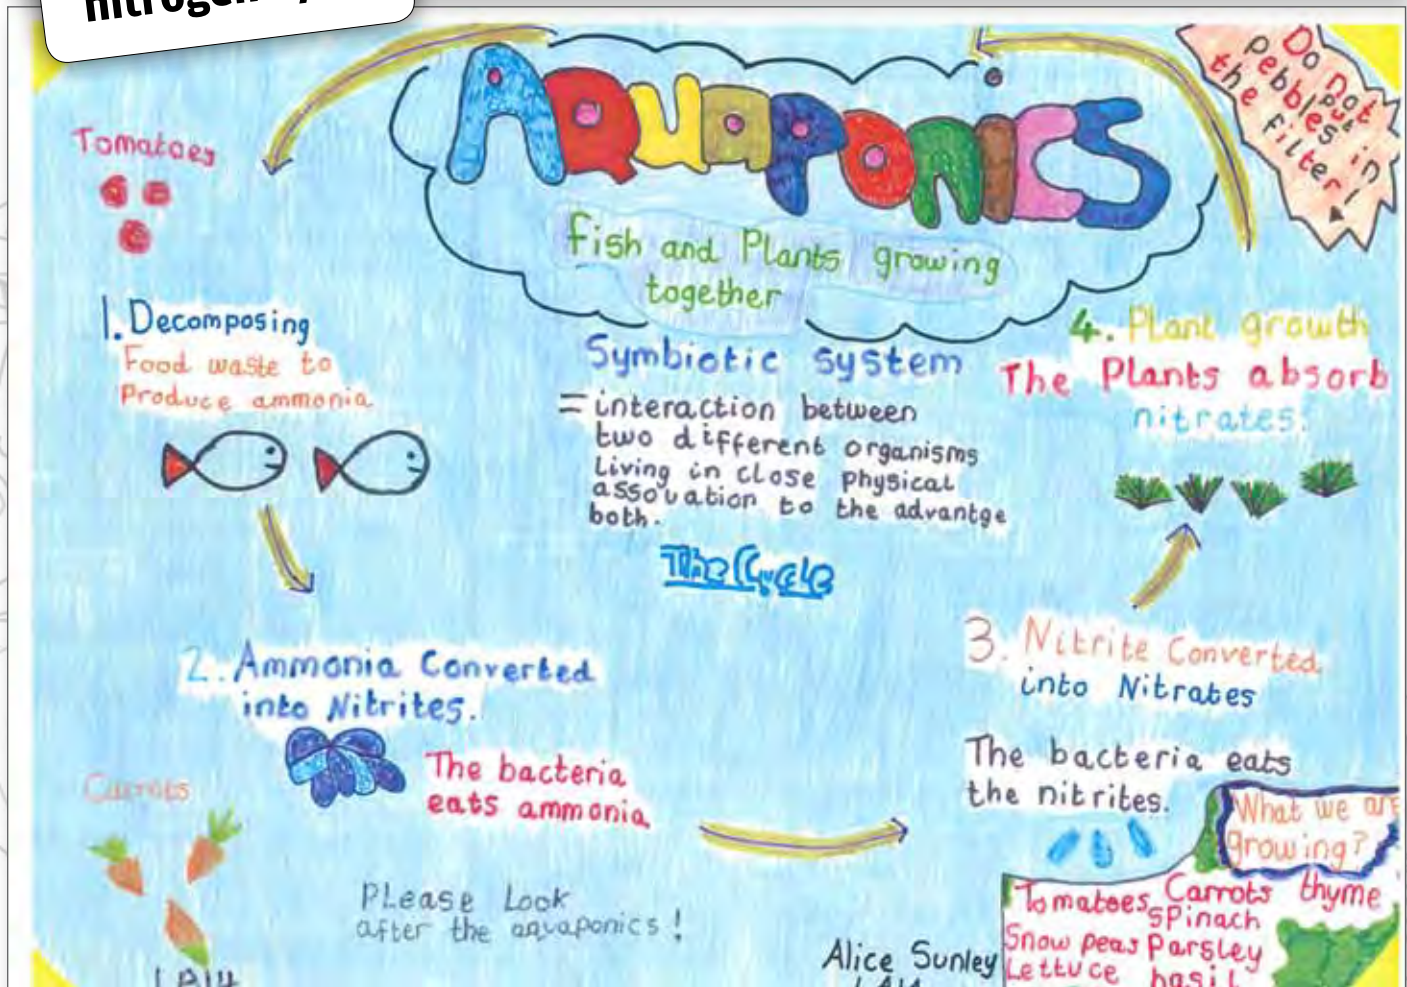 AQUAPONICS
Fish and Plants growing
together
Do not
put
pebbles in
the filter!
Tomatoes
1. Decomposing
Food waste to
Produce ammonia
Symbiotic system
= interaction between
two different organisms
Living in close physical
assouation to the advantge
both.
The Cycle
4. Plant growth
The Plants absorb
nitrates.
2. Ammonia Converted
into Nitrites.
The bacteria
eats ammonia
3. Nitrite Converted
into Nitrates
The bacteria eats
the nitrites.
Carrots
Please Look
after the aquaponics!
What we are
growing?
Tomatoes Carrots thyme
spinach
Snow peas Parsley
Lettuce basil
Alice Sunley